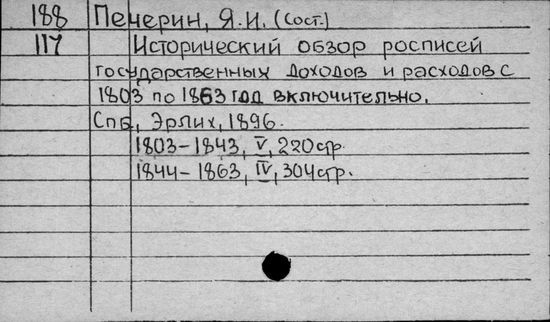 188 Печерин, Я.И. (Сост.)
117 Исторический обзор росписей
государственных доходов и расходов с
1803 по 1863 год включительно.
Спб, Эрлих, 1896.
1803-1843, V, 220 стр.
1844-1863, IV, 304 стр.